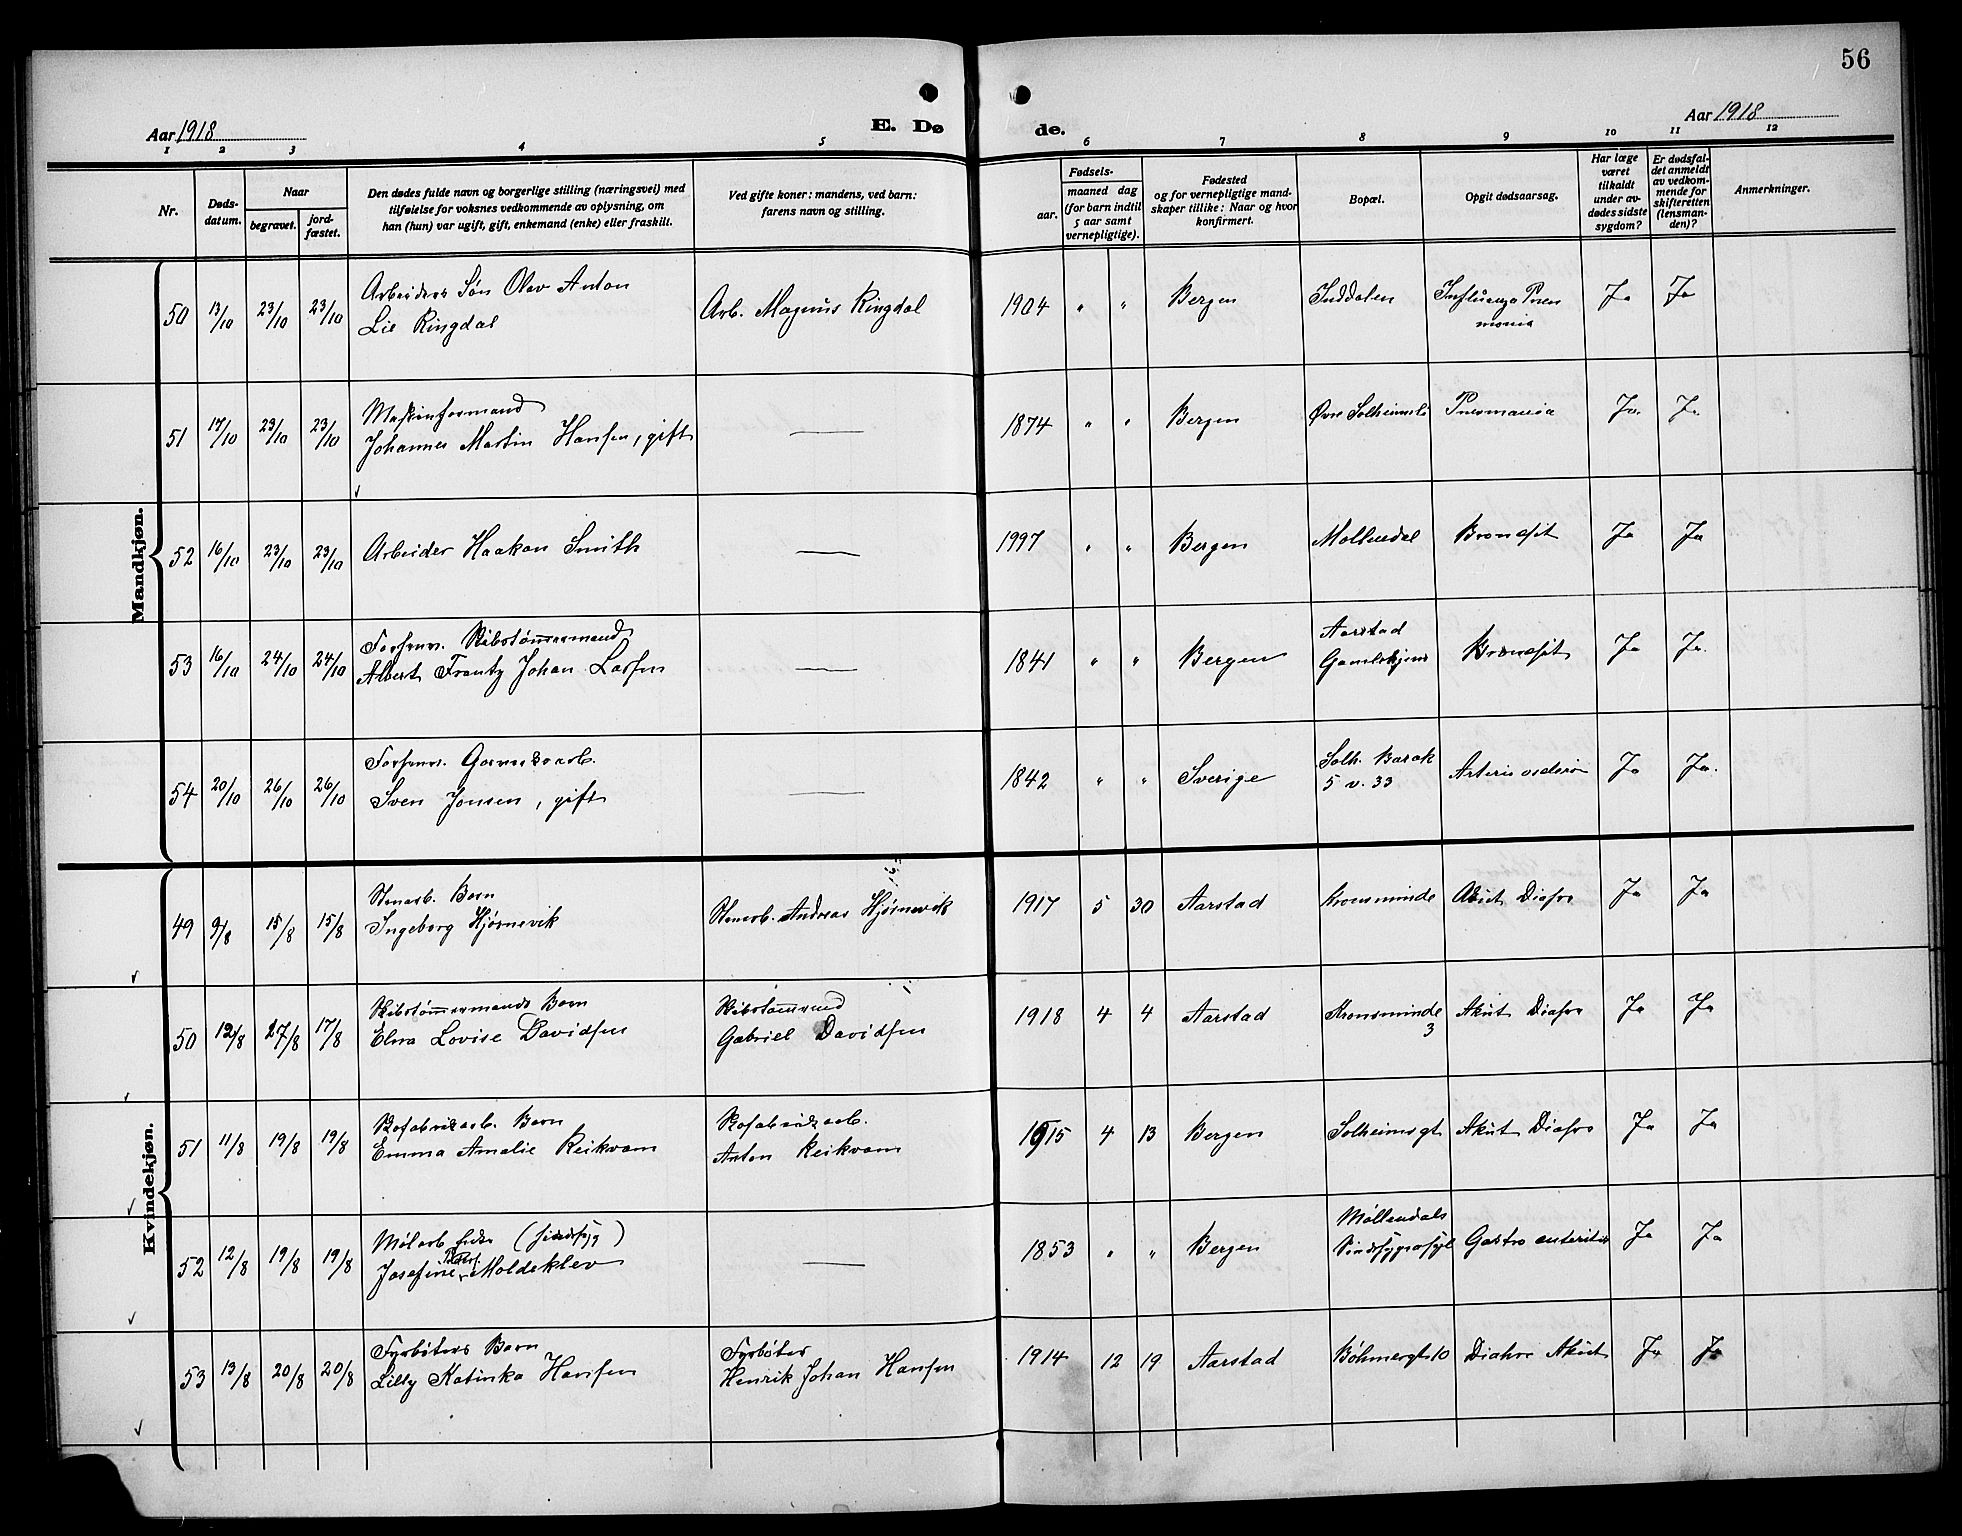 56
Aar 1918
E. Dø
de.
Aar 1918
1 2 3 4 5 6 7 8 9 10 11 12
Nr.
Døds-
datum.
Naar
begravet.
jord-
fæstet.
Den dødes fulde navn og borgerlige stilling (næringsvei) med
tilføielse for voksnes vedkommende av oplysning, om
han (hun) var ugift, gift, enkemand (enke) eller fraskilt.
Ved gifte koner: mandens, ved barn:
farens navn og stilling.
Fødsels-
aar.
maaned dag
(for barn indtil
5 aar samt
vernepligtige).
Fødested
og for vernepligtige mand-
skaper tillike: Naar og hvor
konfirmert.
Bopæl.
Opgit dødsaarsag.
Har læge
været
tilkaldt
under av-
dødes sidste
sygdom?
Er dødsfal-
det anmeldt
av vedkom-
mende for
skifteretten
(lensman-
den)?
Anmerkninger.
Mandkjøn.
50 13/10 23/10 23/10 Arbeiders Søn Olav Anton
Lie Ringdal
Arb. Magnus Ringdal 1904 " " Bergen Inddalen Influenza Pneu
monia
Ja Ja
51 17/10 23/10 23/10 Maskinformand
Johannes Martin Hansen, gift
— 1874 " " Bergen Øvre Solheimsli Pneumania Ja Ja
52 16/10 23/10 23/10 Arbeider Haakon Smith — 1997 " " Bergen Mollendal Bronchit Ja Ja
53 16/10 24/10 24/10 Forhenv. Skibstømmermand
Albert Frantz Johan Larsen
— 1841 " " Bergen Aarstad
Gamlehjem
Bronchit Ja Ja.
54 20/10 26/10 26/10 Forhenv. Garveriarb.
Sven Jonsen, gift
— 1842 " " Sverige Solh. Barak
5 v. 33
Ja Ja.
Kvindekjøn.
49 9/8 15/8 15/8 Stenarb. Barn
Ingeborg Hjørnevik
Stenarb. Andreas Hjørnevik 1917 5 30 Aarstad Kronsminde Akut Diafre Ja Ja
50 12/8 27/8 17/8 Skibstømmermands Barn
Elna Lovise Davidsen
Skibstømmermd
Gabriel Davidsen
1918 4 4 Aarstad Kronsminde
3
Akut Diafre Ja Ja
51 11/8 19/8 19/8 Skofabrikarb. Barn
Emma Amalie Reikvam
Skofabrikarb.
Anton Reikvam
1915 4 13 Bergen Solheimsgt Akut Diafre Ja Ja
52 12/8 19/8 19/8 (sindsyg)
Josefine Moldeklev
— 1853 " " Bergen Møllendals
Sindsygeasyl
Gastro enteritis Ja Ja
53 13/8 20/8 20/8 Fyrbøters Barn
Lilly Katinka Hansen
Fyrbøter
Henrik Johan Hansen
1914 12 19 Aarstad Bøhmergt 10 Diahre Akut Ja Ja